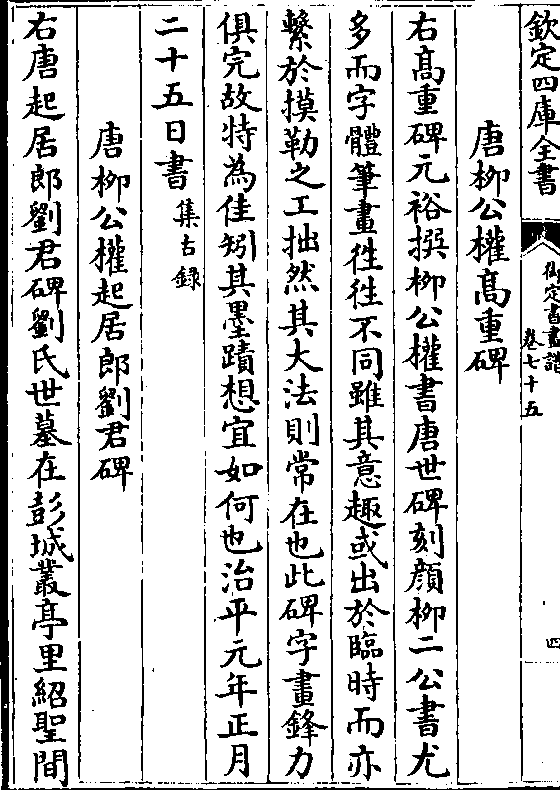 欽定四庫全書
御定書畫譜
卷七十五
四
唐柳公權高重碑
右髙重碑元裕撰柳公權書唐世碑刻顔柳二公書尤
多而字體筆畫徃徃不同雖其意趣或出於臨時而亦
繫於摸勒之工拙然其大法則常在也此碑字畫鋒力
俱完故特為佳矧其墨蹟想宜如何也治平元年正月
二十五日書集古録
唐柳公權起居郎劉君碑
右唐起居郎劉君碑劉氏世墓在彭城叢亭里紹聖間